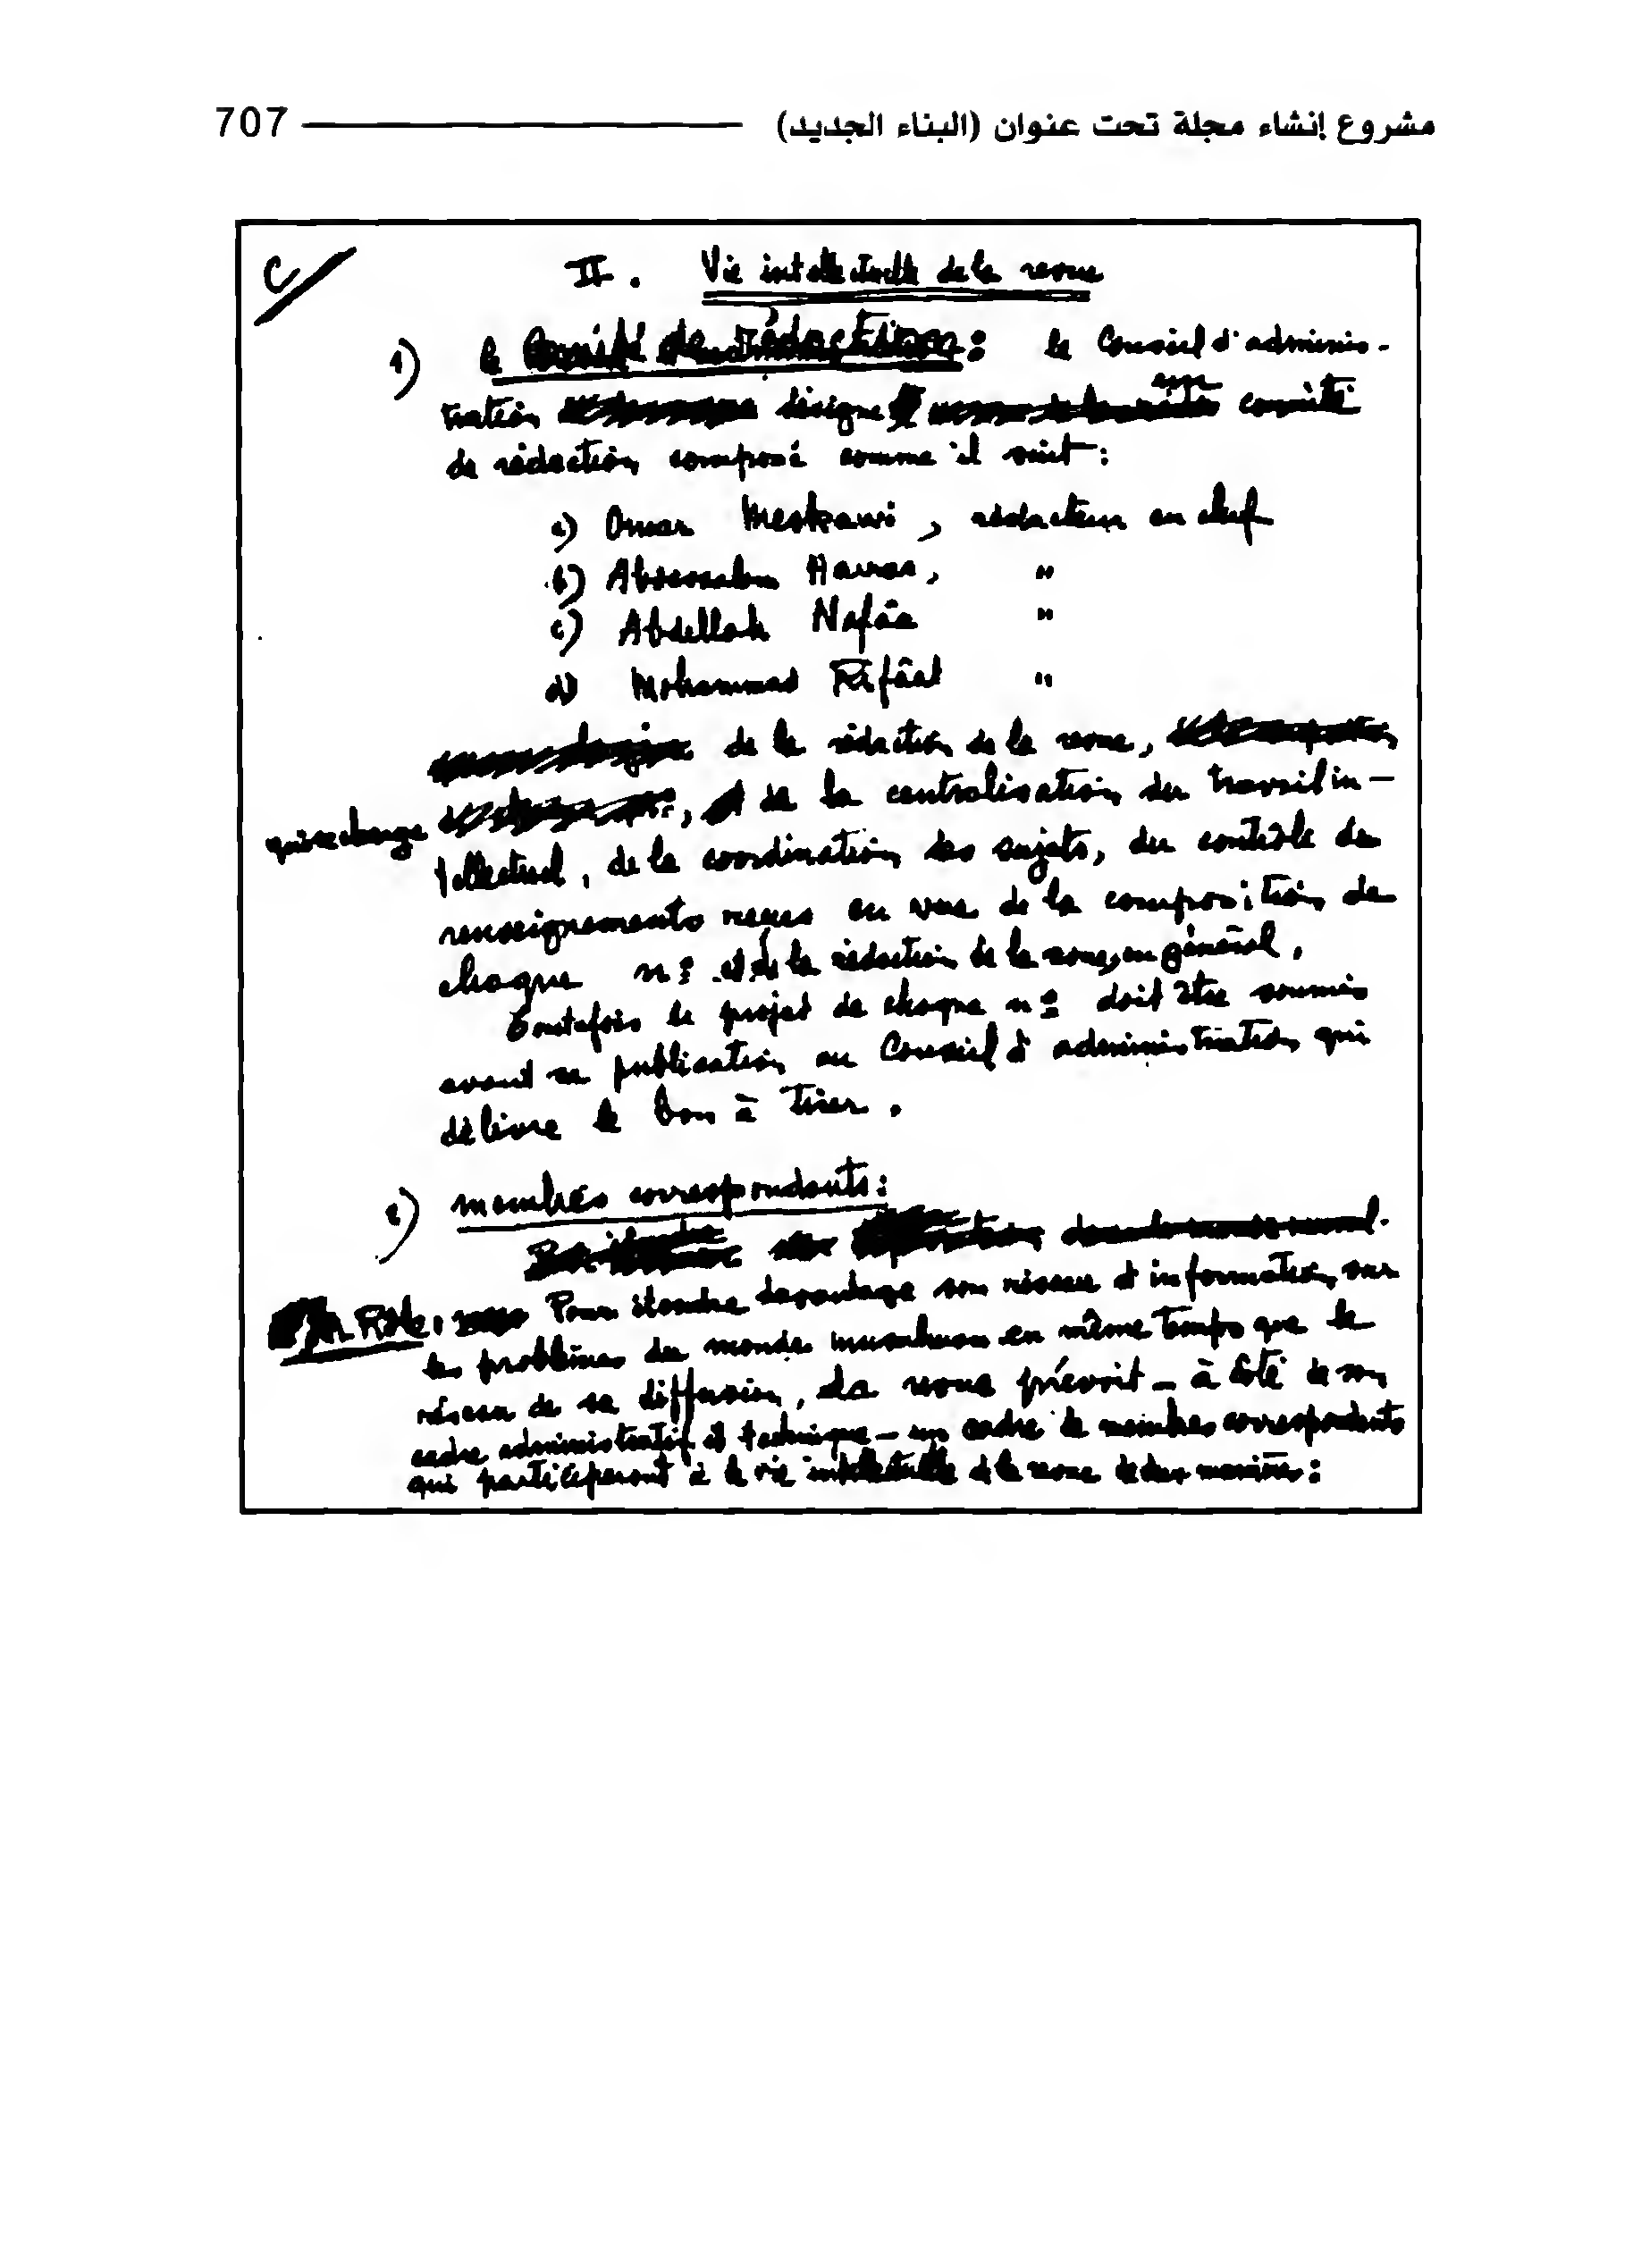 مشروع إنشاء مجلة تحت عنوان (البناء الجديد) 707
C/
II. Vie intellectuelle de la revue
1) le Comité de rédaction : le Conseil d'adminis-
tration désigne un comité
de rédaction composé comme il suit :
a) Omar Meskawi, rédacteur en chef
b) Abdessalam Harras, "
c) Abdellah Nafâa "
d) Mohammad Rifâat "
de la rédaction de la revue,
qui se charge , de la centralisation du travail in-
tellectuel, de la coordination des sujets, du contrôle des
renseignements reçus en vue de la composition de
chaque nº et de la rédaction de la revue, en général.
Toutefois le projet de chaque nº doit être soumis
avant sa publication au Conseil d'administration qui
délivre le bon à tirer.
2) membres correspondants :
Rôle : Pour étendre davantage son réseau d'information, sur
les problèmes du monde musulman en même temps que le
réseau de sa diffusion, la revue prévoit - à côté de son
cadre administratif et technique - un cadre de membres correspondants
qui participeront à la vie intellectuelle de la revue de deux manières :